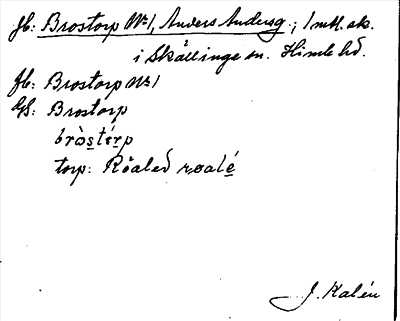 Jb: Brostorp No 1, Anders Andersg.; 1 mtl. sk.
i Skällinge sn. Himle hd.
Jb: Brostorp No 1
GS: Brostorp
bròstòrp
torp: Röaled røalé
J. Kalén